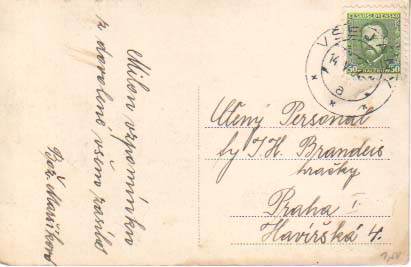 Milou vzpomínku
z dovolené všem zasílá
Bož. Maříková
ČESKOSLOVENSKO
50 50
14 V
a
Ctěný Personál
fy J. H. Brandeis
hračky
Praha I
Havířská 4.